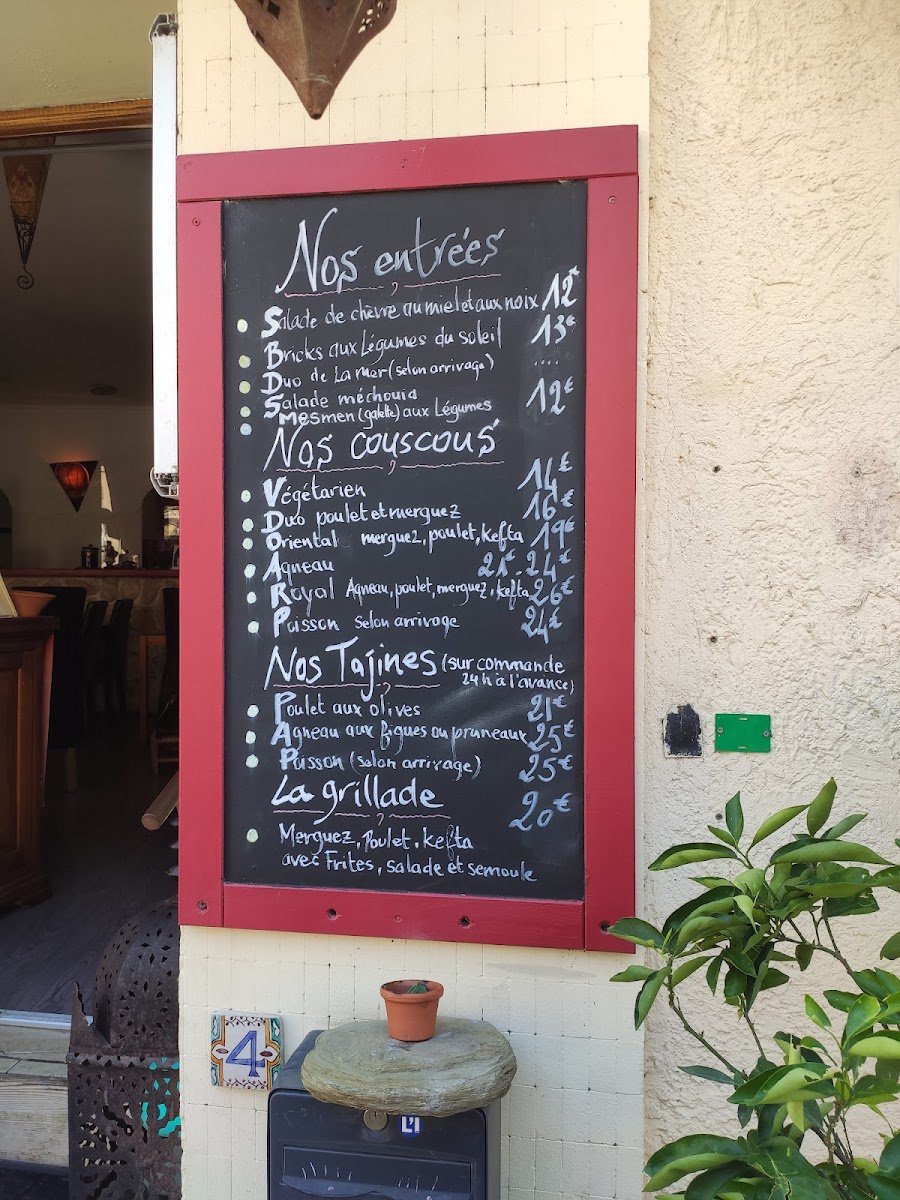 Nos entrées
Salade de chèvre au miel et aux noix 12€
Bricks aux Légumes du soleil 13€
Duo de La mer (selon arrivage) ....
Salade méchouia
Mesmen (galette) aux Légumes 12€
Nos couscous
Végétarien 14€
Duo poulet et merguez 16€
Oriental merguez, poulet, kefta 19€
Agneau 21€ - 24€
Royal Agneau, poulet, merguez, kefta 26€
Poisson selon arrivage 24€
Nos Tajines (sur commande
24h à l'avance)
Poulet aux olives 21€
Agneau aux figues ou pruneaux 25€
Poisson (selon arrivage) 25€
La grillade 20€
Merguez, Poulet, kefta
avec Frites, salade et semoule
4